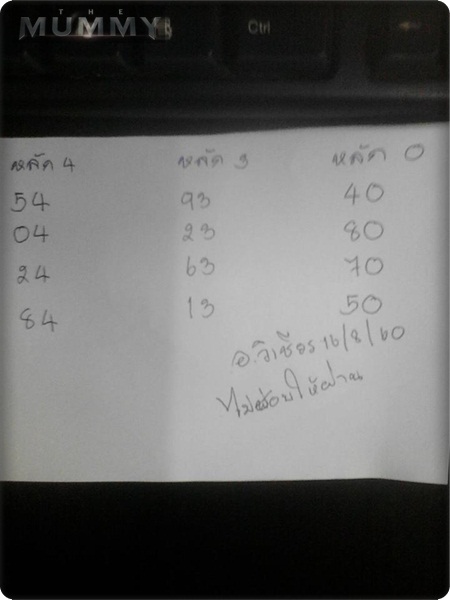 THE
MUMMY
Ctrl
หลัก 4 หลัก 3 หลัก 0
54 93 40
04 23 80
24 63 70
84 13 50
อ.วิเชียร 16/8/60
ไม่ชอบให้ผ่าน